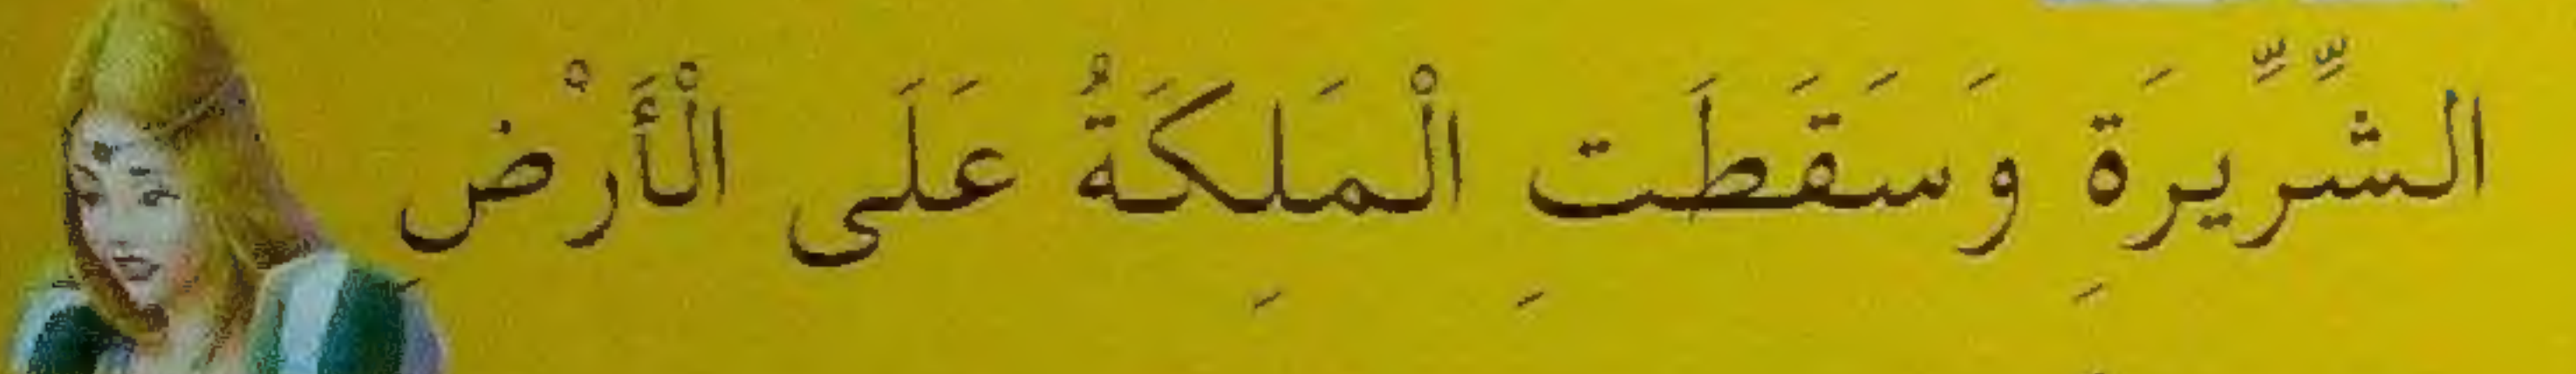 الشِّرِّيرَةِ وَسَقَطَتِ الْمَلِكَةُ عَلَى الْأَرْضِ